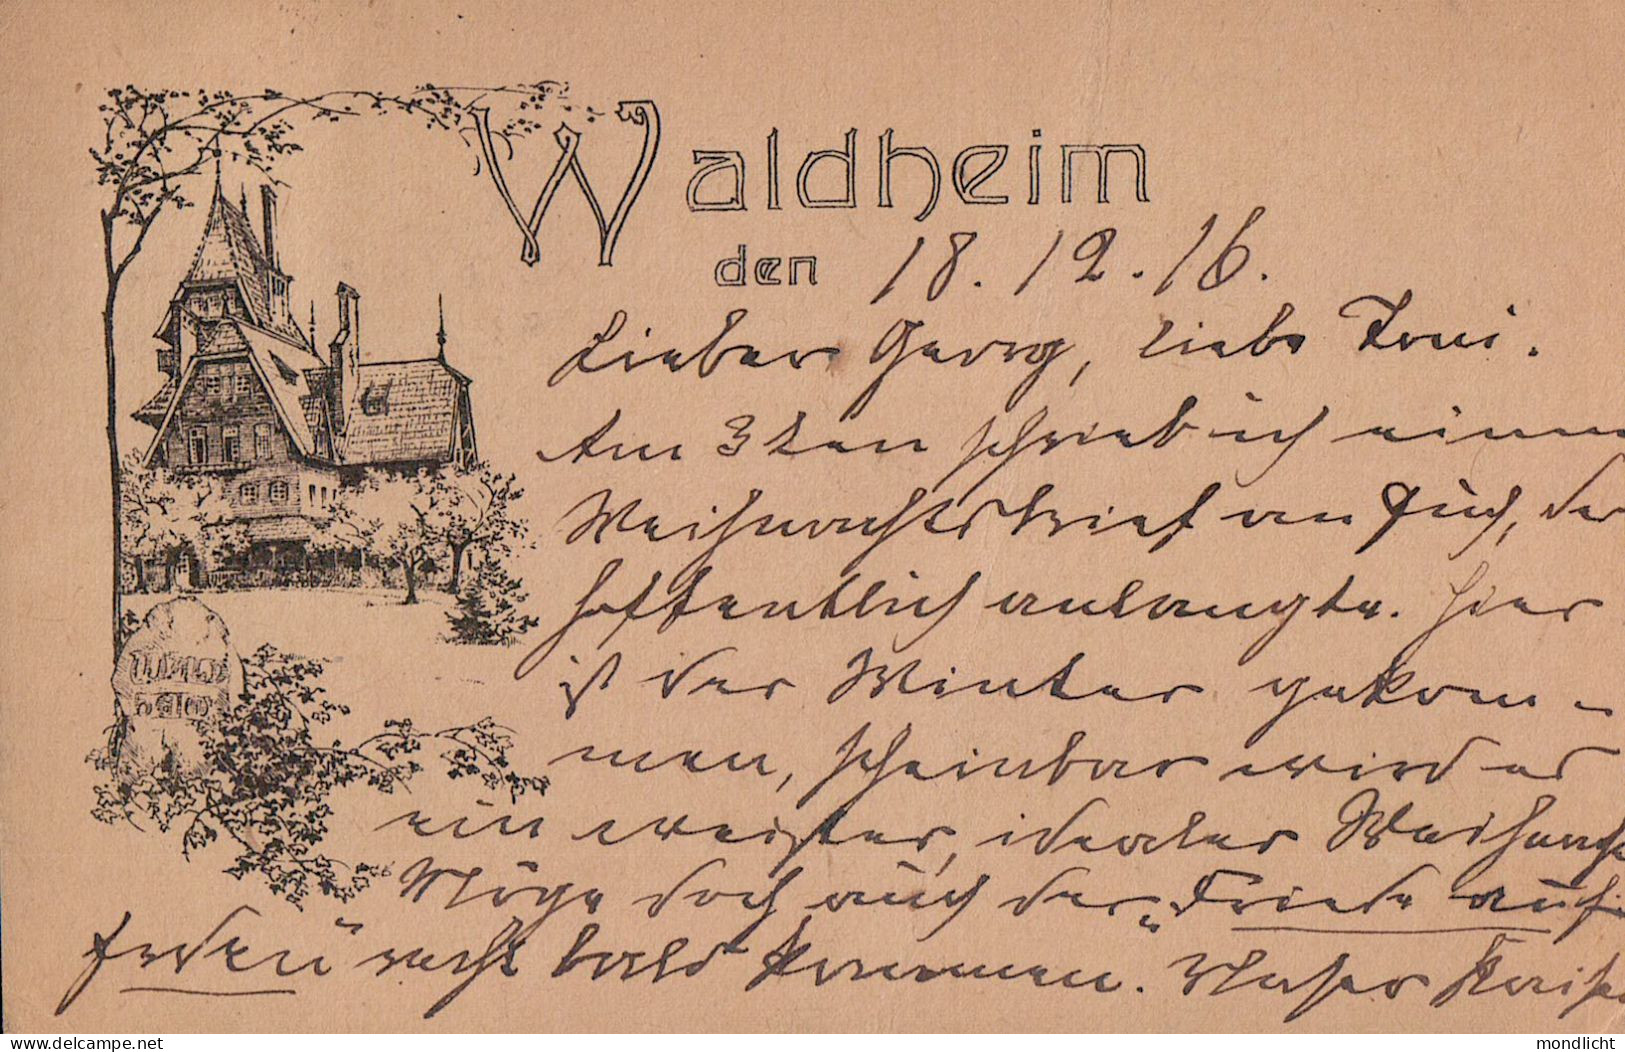 Waldheim
den 18.12.16.
Lieber Georg, liebe Toni.
Am 3ten schrieb ich einen
Weihnachtsbrief an Euch, der
hoffentlich anlangte. Hier
ist der Winter gekom-
men, scheinbar wird es
ein weißer, idealer
Möge doch auch der „Friede auf
Erden“ recht bald kommen. Unser
www.delcampe.net
mondlicht